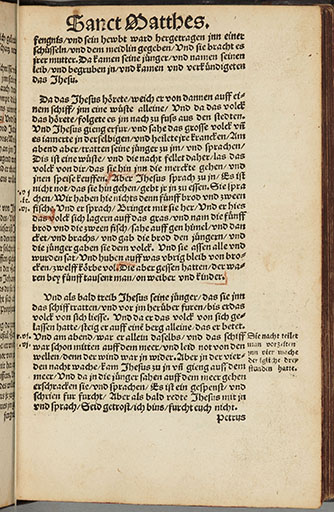 Sanct Matthes.
fengnis/ vnd sein hewbt ward hergetragen jnn einer
schüsseln/ vnd dem meidlin gegeben/ Vnd sie bracht es
jrer mutter. Da kamen seine jünger/ vnd namen seinen
leib/ vnd begruben jn/ vnd kamen vnd verkündigeten
das Jhesu.
Da das Jhesus hörete/ weich er von dannen auff ei
nem schiff/ jnn eine wüste alleine/ Vnd da das volck
das hörete/ folgete es jm nach zu fuss aus den stedten.
Vnd Jhesus gieng erfur/ vnd sahe das grosse volck/ vñ
es iamerte jn derselbigen/ vnd heilete jre krancken/ Am
abend aber/ tratten seine jünger zu jm/ vnd sprachen/
Dis ist eine wüste/ vnd die nacht fellet daher/ las das
volck von dir/ das sie hin jnn die merckte gehen/ vnd
jnen speise keuffen/ Aber Jhesus sprach zu jn/ Es ist
nicht not/ das sie hin gehen/ gebt jr jn zu essen/ Sie spra
chen/ Wir haben hie nichts denn fünff brod vnd zween
fische/ Vnd er sprach/ Bringet mir sie her/ Vnd er hies
das volck sich lagern auff das gras/ vnd nam die fünff
brod vnd die zween fisch/ sahe auff gen himel/ vnd dan
cket/ vnd brachs/ vnd gab die brod den jüngern/ vnd
die jünger gaben sie dem volck/ Vnd sie assen alle vnd
wurden sat/ Vnd huben auff was vbrig bleib von bro-
cken/ zwelff körbe vol/ Die aber gessen hatten/ der wa-
ren bey fünff tausent man/ on weiber vnd kinder.
Vnd als bald treib Jhesus seine jünger/ das sie jnn
das schiff tratten/ vnd vor jm herüber furen/ bis er das
volck von sich liesse/ Vnd da er das volck von sich ge-
lassen hatte/ steig er auff eine berg alleine/ das er betet.
Vnd am abend/ war er allein daselbs/ vnd das schiff
war schon mitten auff dem meer/ vnd leid not von den
wellen/ denn der wind war jn wider. Aber jn der vier-
den nacht wache/ kam Jhesus zu jn vñ gieng auff dem
meer/ Vnd da jn die jünger sahen auff dem meer gehen
erschracken sie/ vnd sprachen/ Es ist ein gespenst/ vnd
schrien fur furcht/ Aber als bald redte Jhesus mit jn
vnd sprach/ Seid getrost/ ich bins/ furcht euch nicht.
Petrus
Die nacht teilet
man vorzeiten
jnn vier wache
der igliche drey
stunden hatte.